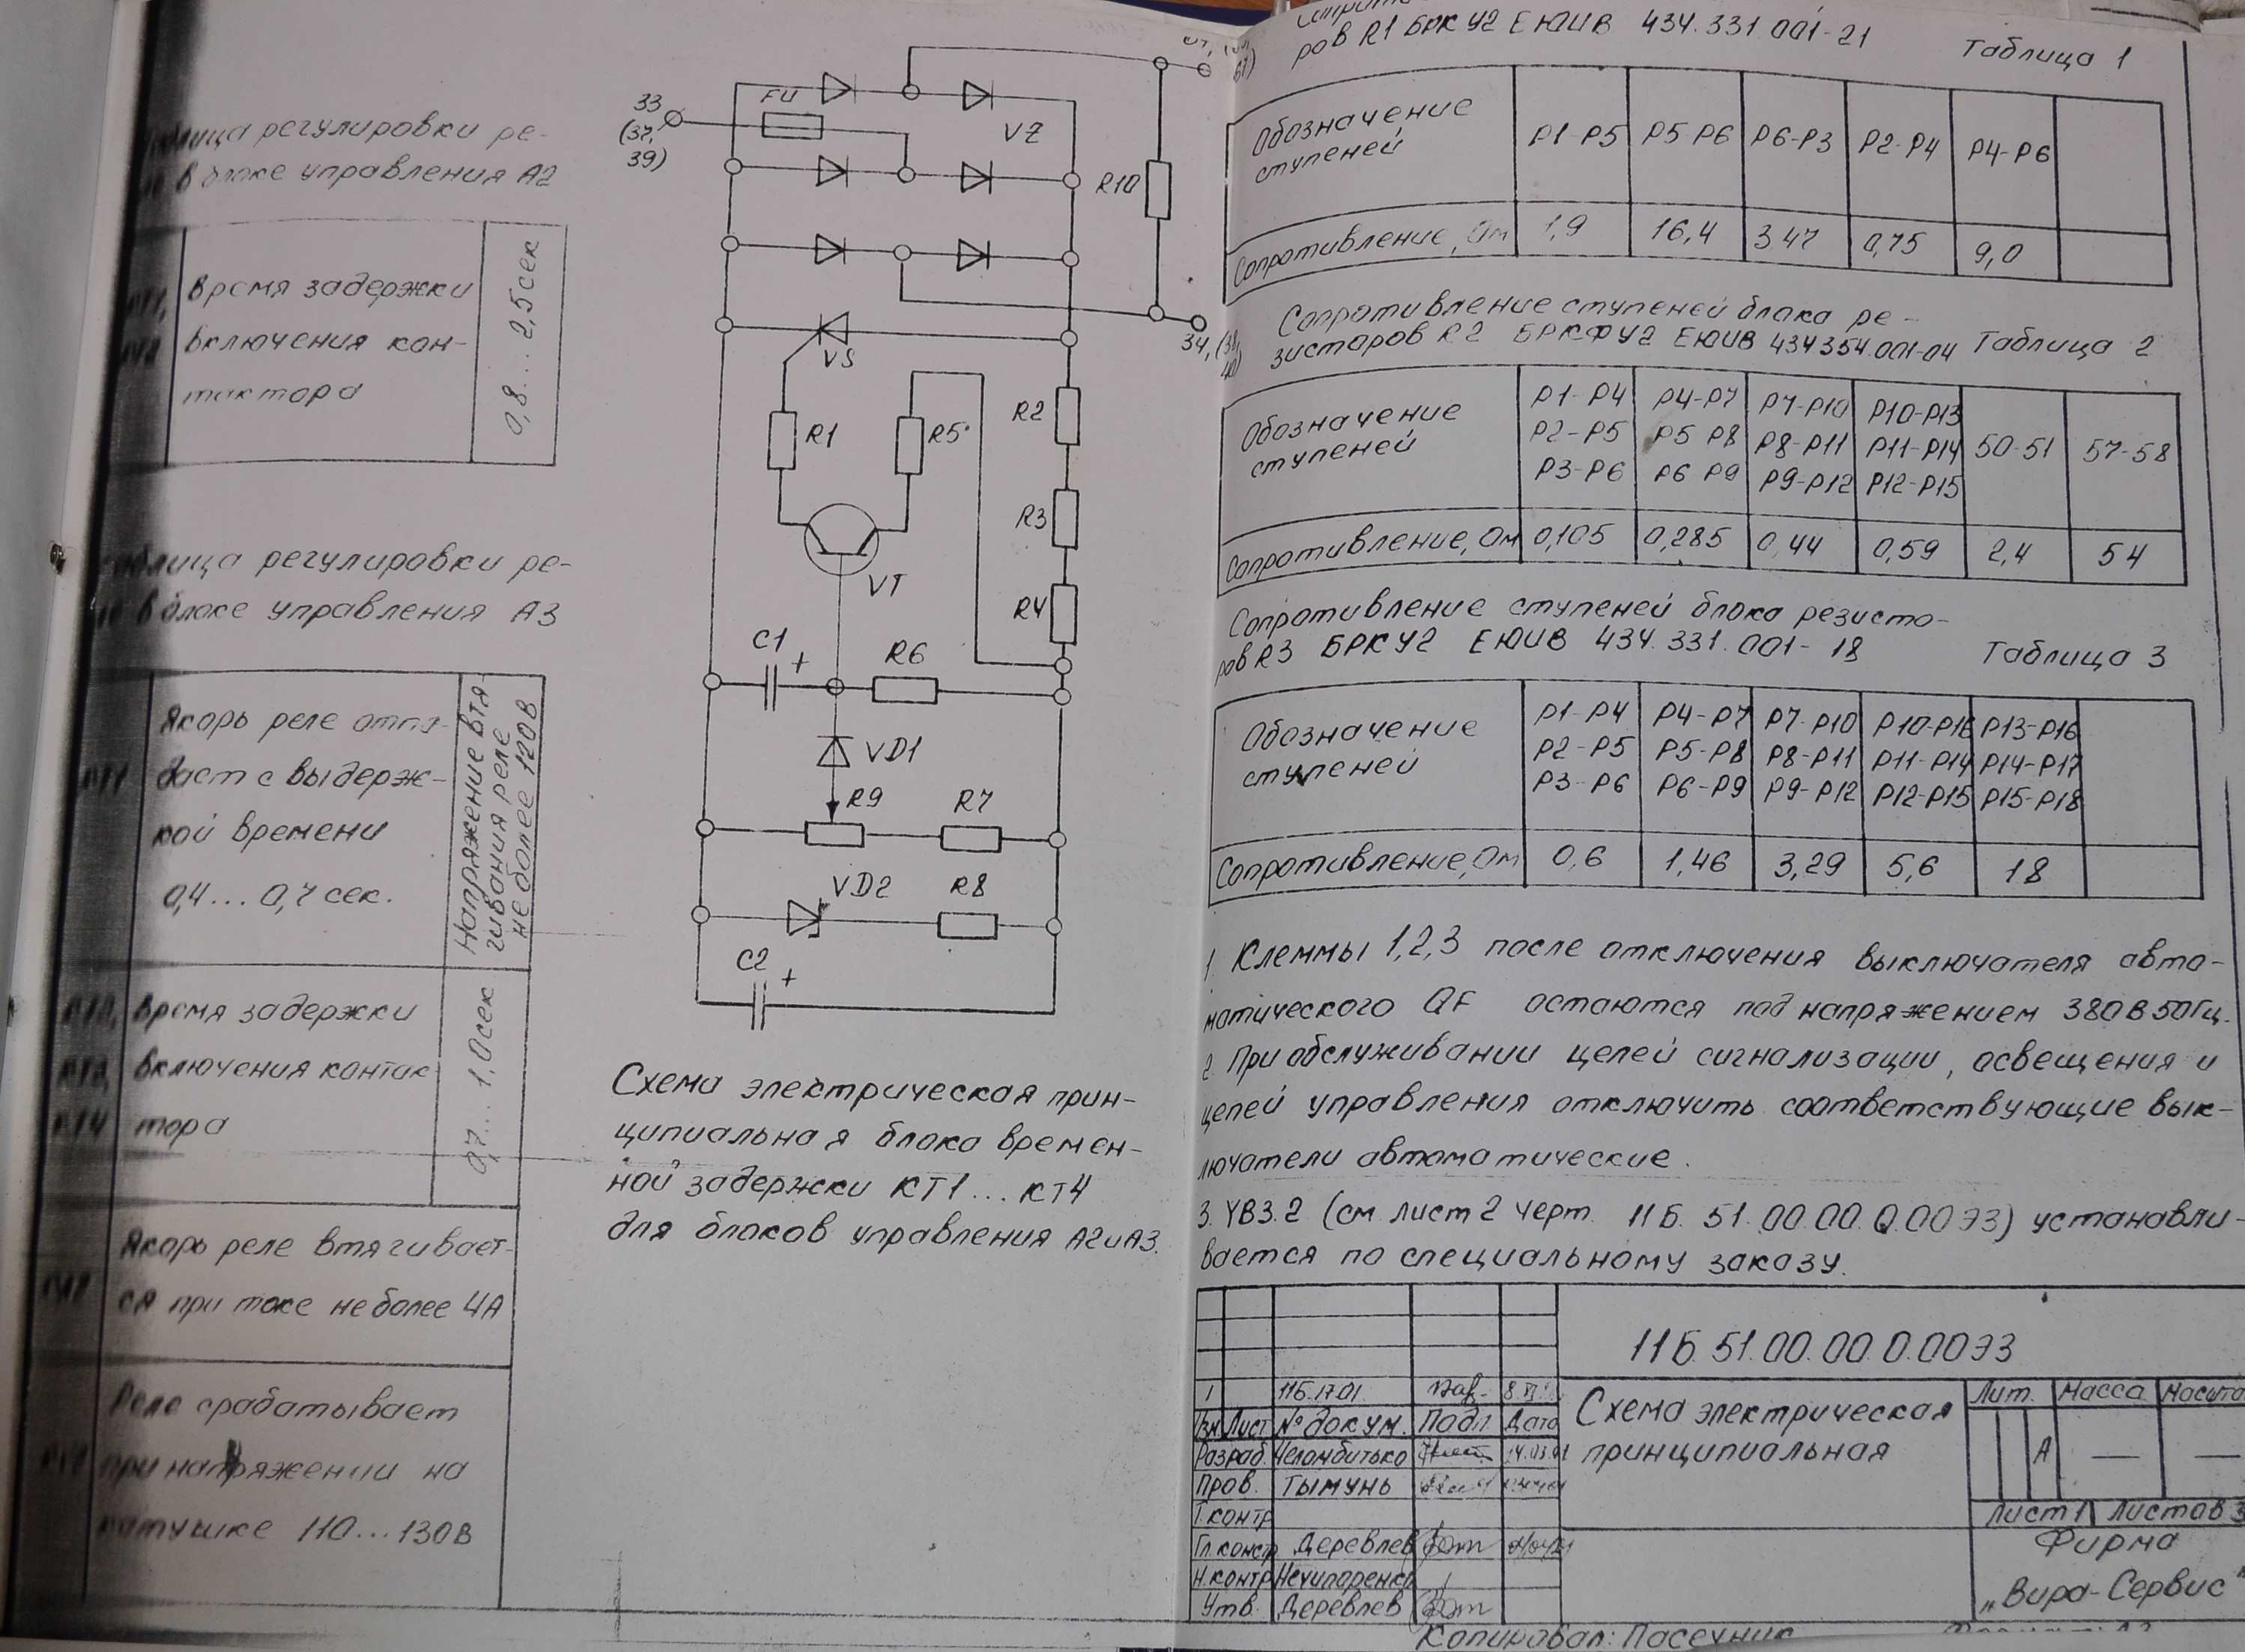 регулировки ре-
в блоке управления А2
время задержки
включения кон-
тактора
0,8...2,5сек
регулировки ре-
в блоке управления А3
Якорь реле
с выдерж-
кой времени
0,4...0,7 сек.
Напряжение втя-
гивания реле
не более 120В
время задержки
включения контак
тора
0,7...1,0сек
Якорь реле втягивает-
ся при токе не более 4А
Реле срабатывает
при напряжении на
катушке 110...130В
33
(37,
39)
FU
VZ
R10
34,
VS
R1
R5
R2
R3
VT
R4
C1
+
R6
VD1
R9
R7
VD2
R8
C2
+
Схема электрическая прин-
ципиальная блока времен-
ной задержки КТ1...КТ4
для блоков управления А2иА3.
ров R1 БРК У2 ЕЮИВ 434.331.001-21
Таблица 1
Обозначение
ступеней
Р1-Р5
Р5-Р6
Р6-Р3
Р2-Р4
Р4-Р6
Сопротивление, Ом
1,9
16,4
3,47
0,75
9,0
Сопротивление ступеней блока ре-
зисторов R2 БРКФУ2 ЕЮИВ 434354.001-04 Таблица 2
Обозначение
ступеней
Р1-Р4 Р4-Р7 Р7-Р10 Р10-Р13
Р2-Р5 Р5 Р8 Р8-Р11 Р11-Р14 50-51 57-58
Р3-Р6 Р6 Р9 Р9-Р12 Р12-Р15
Сопротивление, Ом 0,105 0,285 0,44 0,59 2,4 54
Сопротивление ступеней блока резисто-
ров R3 БРКУ2 ЕЮИВ 434.331.001-18 Таблица 3
Обозначение
ступеней
Р1-Р4 Р4-Р7 Р7-Р10 Р10-Р16 Р13-Р16
Р2-Р5 Р5-Р8 Р8-Р11 Р11-Р14 Р14-Р17
Р3-Р6 Р6-Р9 Р9-Р12 Р12-Р15 Р15-Р18
Сопротивление, Ом 0,6 1,46 3,29 5,6 18
1. Клеммы 1,2,3 после отключения выключателя авто-
матического QF остаются под напряжением 380В 50Гц.
2. При обслуживании цепей сигнализации, освещения и
цепей управления отключить соответствующие вык-
лючатели автоматические.
3. YB3.2 (см. лист 2 черт. 11Б.51.00.00.0.00Э3) устанавли-
вается по специальному заказу.
11Б.51.00.00.0.00Э3
1 11Б.17.01.
Изм. Лист № докум. Подп Дата
Разраб. Челомбитько 14.03.01
Пров. Тымунь
Т.контр
Гл.констр Деревлев
Н.контр Нечипоренко
Утв. Деревлев
Схема электрическая
принципиальная
Лит. Масса Масшта
А — —
Лист 1 Листов 3
Фирма
„Вира-Сервис"
Копировал: Пасечник